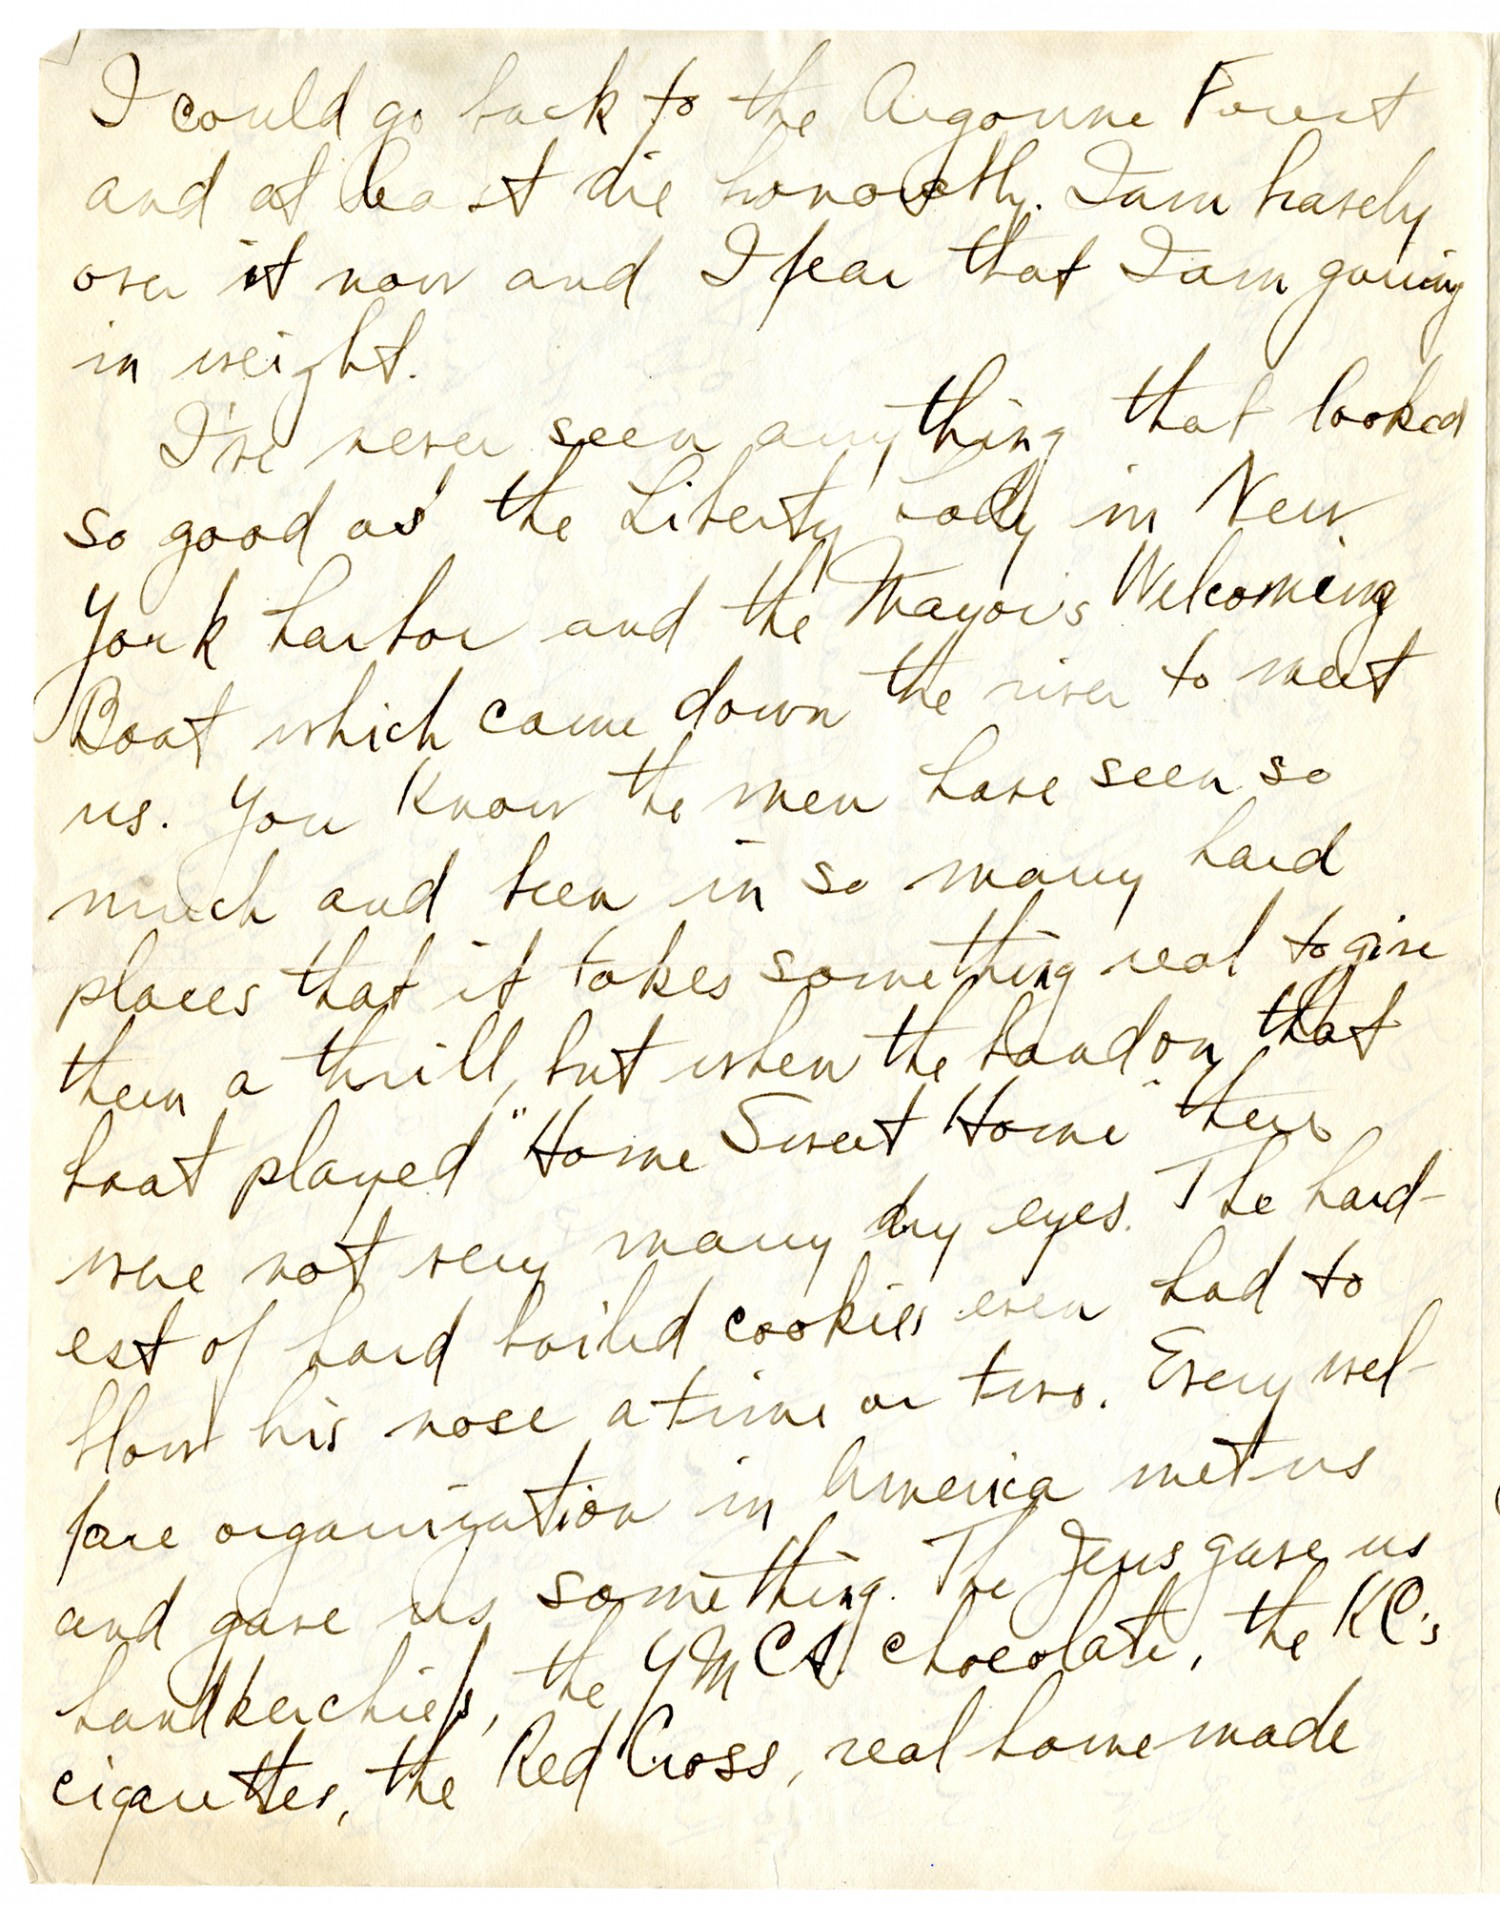 I could go back to the Argonne Forest
and at least die honorably. I am barely
over it now and I fear that I am gaining
in weight.
I've never seen anything that looked
so good as the Liberty Lady in New
York harbor and the Mayor's Welcoming
Boat which came down the river to meet
us. You know the men have seen so
much and been in so many hard
places that it takes something real to give
them a thrill, but when the band on that
boat played "Home Sweet Home" there
were not very many dry eyes. The hard-
est of hard boiled cookies even had to
blow his nose a time or two. Every wel-
fare organization in America met us
and gave us something. The Jews gave us
handkerchiefs, the YMCA chocolate, the KC's
cigarettes, the Red Cross, real home made